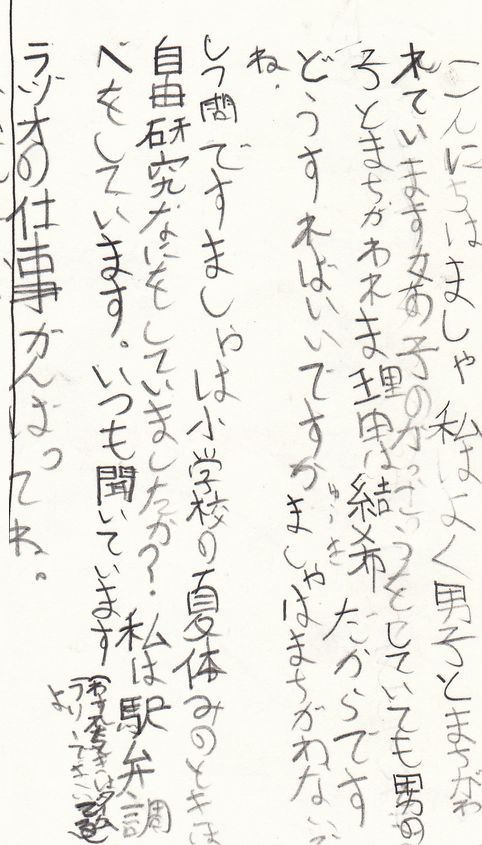 こんにちはましゃ私はよく男子とまちがわ
れています女の子のかっこうをしていても男の
子とまちがわれま理由は結希だからです
ゆうき
どうすればいいですか ましゃはまちがわない
ね.
しつ問ですましゃは小学校の夏休みのときは
自由研究なにをしていましたか?私は駅弁調
べをしています。いつも聞いています
ラジオの仕事がんばってね。